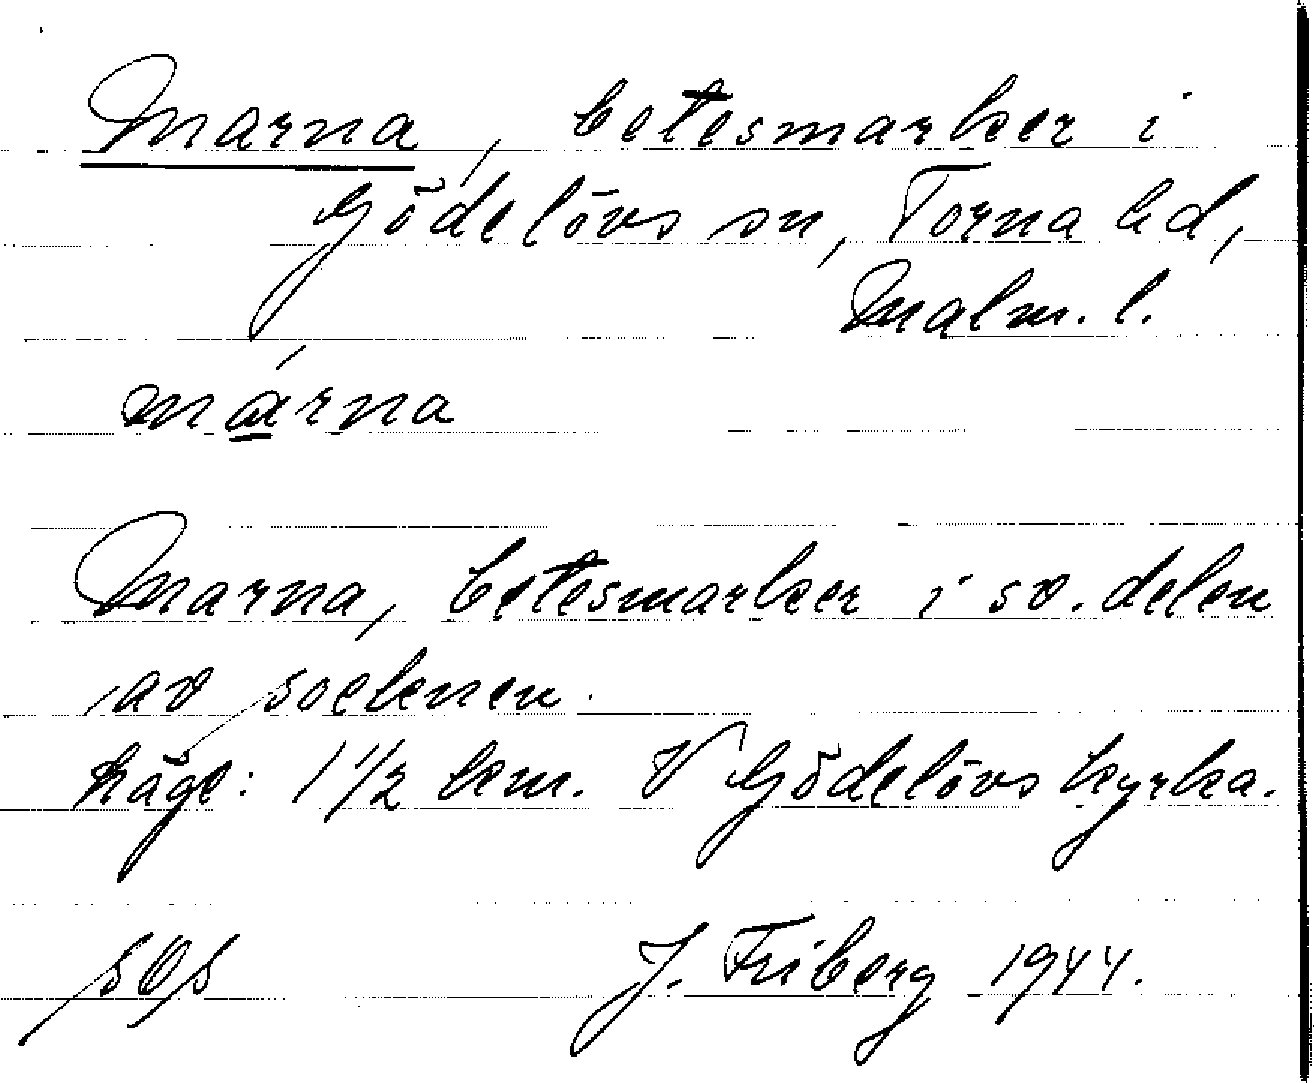 Marna, betesmarker i
Gödelövs sn, Torna hd,
Malm. l.
márna
Marna, betesmarker i sv. delen
av socknen.
Läge: 1 1/2 km. V Gödelövs kyrka.
J. Friberg 1944.